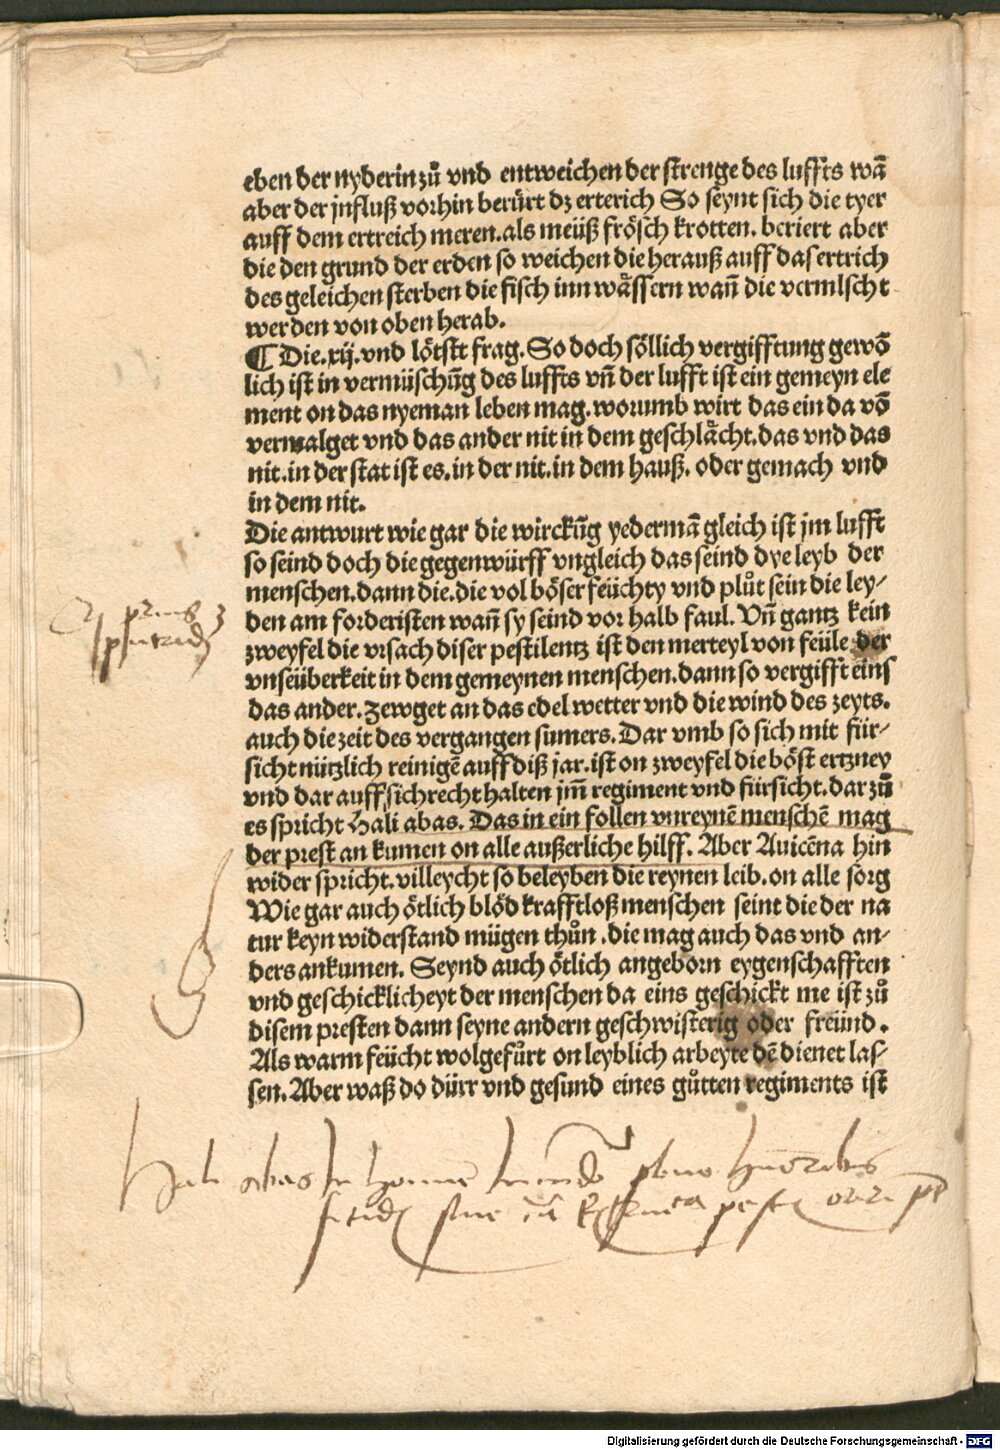 eben der nyderin zů vnd entweichen der strenge des luffts wā
aber der jnfluß vorhin berürt dz erterich So seynt sich die tyer
auff dem ertreich meren. als meüß frösch krotten. beriert aber
die den grund der erden so weichen die herauß auff das ertrich
des geleichen sterben die fisch inn wåssern wañ die vermischt
werden von oben herab.
¶ Die .xij. vnd lötstt frag. So doch söllich vergifftung gewō
lich ist in vermüschūg des luffts vñ der lufft ist ein gemeyn ele
ment on das nyeman leben mag. worumb wirt das ein da vō
vermalget vnd das ander nit in dem geschlåcht. das vnd das
nit. in der stat ist es. in der nit. in dem hauß. oder gemach vnd
in dem nit.
Die antwurt wie gar die wirckūg yedermā gleich ist jm lufft
so seind doch die gegenwürff vngleich das seind dye leyb der
menschen. dann die. die vol böser feüchty vnd plůt sein die ley/
den am fordersten wañ sy seind vor halb faul. Vñ gantz kein
zweyfel die vrsach diser pestilentz ist den merteyl von feüle der
vnseüberkeit in dem gemeynen menschen. dann so vergifft eins
das ander. Zewget an das edel wetter vnd die wind des zeyts.
auch die zeit des vergangen sumers. Dar vmb so sich mit für/
sicht nützlich reinigē auff diß jar. ist on zweyfel die böst ertzney
vnd dar auff sich recht halten jm̄ regiment vnd fürsicht. dar zū
es spricht Hali abas. Das in ein follen vnreynē menschē mag
der prest an kumen on alle außerliche hilff. Aber Auicēna hin
wider spricht. villeycht so beleyben die reynen leib. on alle sorg
Wie gar auch ötlich blöd krafftloß menschen seint die der na
tur keyn widerstand mügen thůn. die mag auch das vnd an/
ders ankumen. Seynd auch ötlich angeborn eygenschafften
vnd geschicklicheyt der menschen da eins geschickt me ist zů
disem presten dann seyne andern geschwisterig oder freünd.
Als warm feücht wolgefůrt on leyblich arbeyte dē dienet las/
sen. Aber waß do dürr vnd gesund eines gůtten regiments ist
Hali abas In homine pleno humoribus
sine pestem oriri
Digitalisierung gefördert durch die Deutsche Forschungsgemeinschaft - DFG